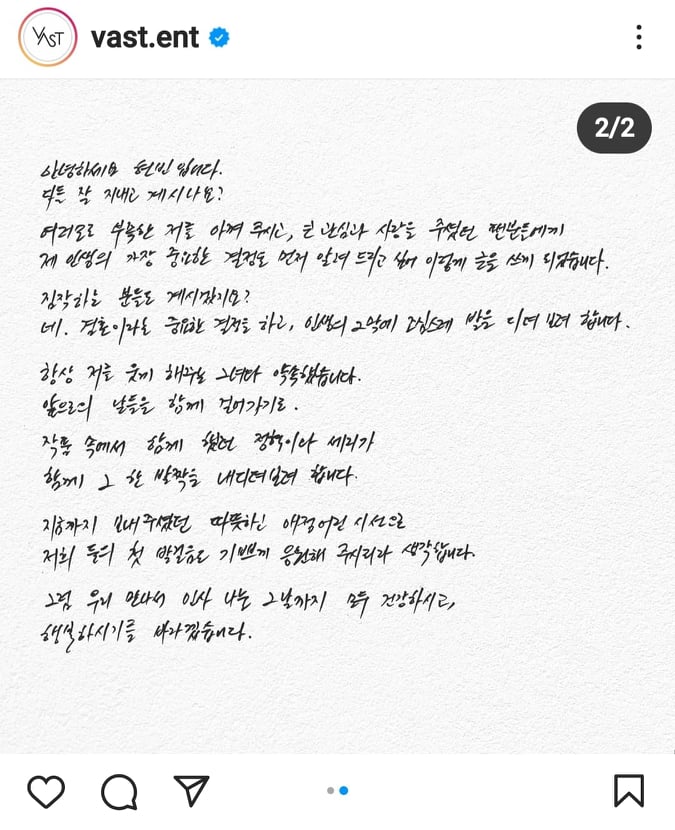 VAST
vast.ent
2/2
안녕하세요 현빈입니다.
다들 잘 지내고 계시나요?
여러모로 부족한 저를 아껴 주시고, 큰 관심과 사랑을 주셨던 팬분들에게
제 인생의 가장 중요한 결정을 먼저 알려 드리고 싶어 이렇게 글을 쓰게 되었습니다.
짐작하는 분들도 계시겠지요?
네. 결혼이라는 중요한 결정을 하고, 인생의 2막에 조심스레 발을 디뎌 보려 합니다.
항상 저를 웃게 해주는 그녀와 약속했습니다.
앞으로의 날들을 함께 걸어가기로.
작품 속에서 함께 했던 정혁이와 세리가
함께 그 한 발짝을 내디뎌보려 합니다.
지금까지 보내주셨던 따뜻하신 애정어린 시선으로
저희 둘의 첫 발걸음도 기쁘게 응원해 주시리라 생각합니다.
그럼 우리 만나서 인사 나눌 그날까지 모두 건강하시고,
행복하시기를 바라겠습니다.